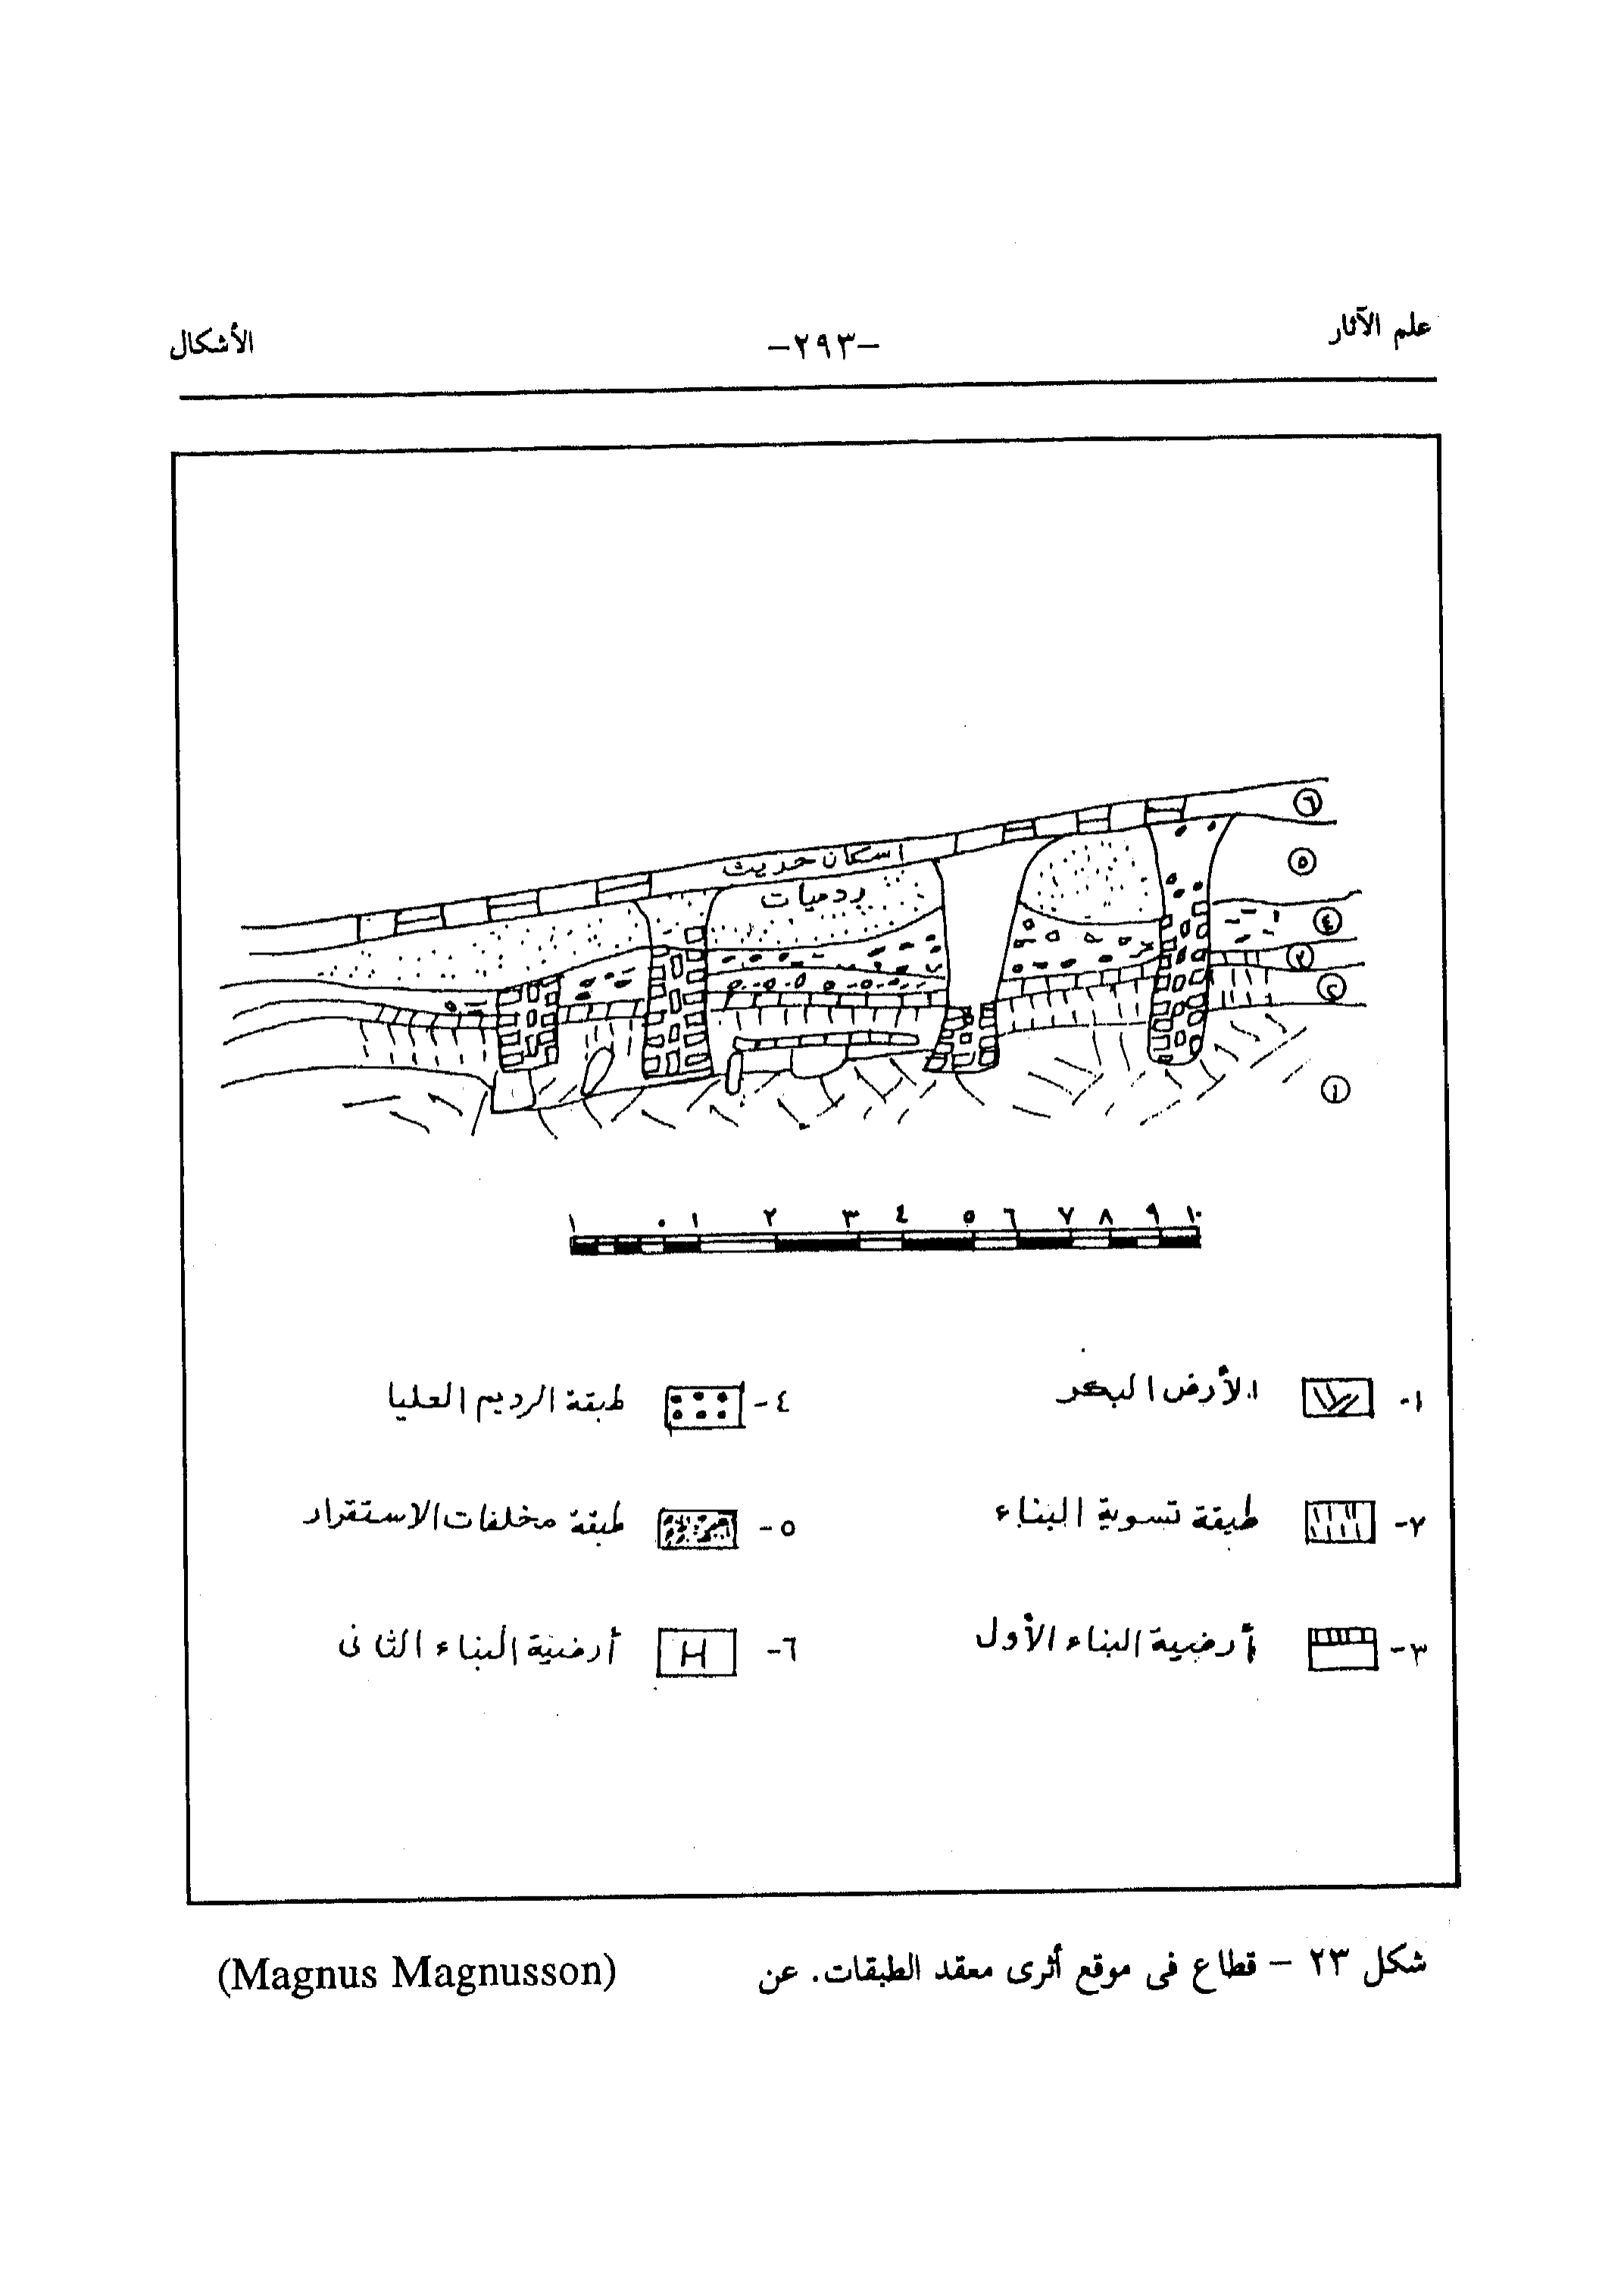 علم الآثار -٢٩٣- الأشكال
اسكان حديث
ردميات
٦
٥
٤
٣
٢
١
١ ٠ ١ ٢ ٣ ٤ ٥ ٦ ٧ ٨ ٩ ١٠
١- الأرض البكر
٢- طبقة تسوية البناء
٣- أرضية البناء الأول
٤- طبقة الرديم العليا
٥- طبقة مخلفات الاستقرار
٦- أرضية البناء الثانى
شكل ٢٣ - قطاع فى موقع أثرى معقد الطبقات. عن (Magnus Magnusson)